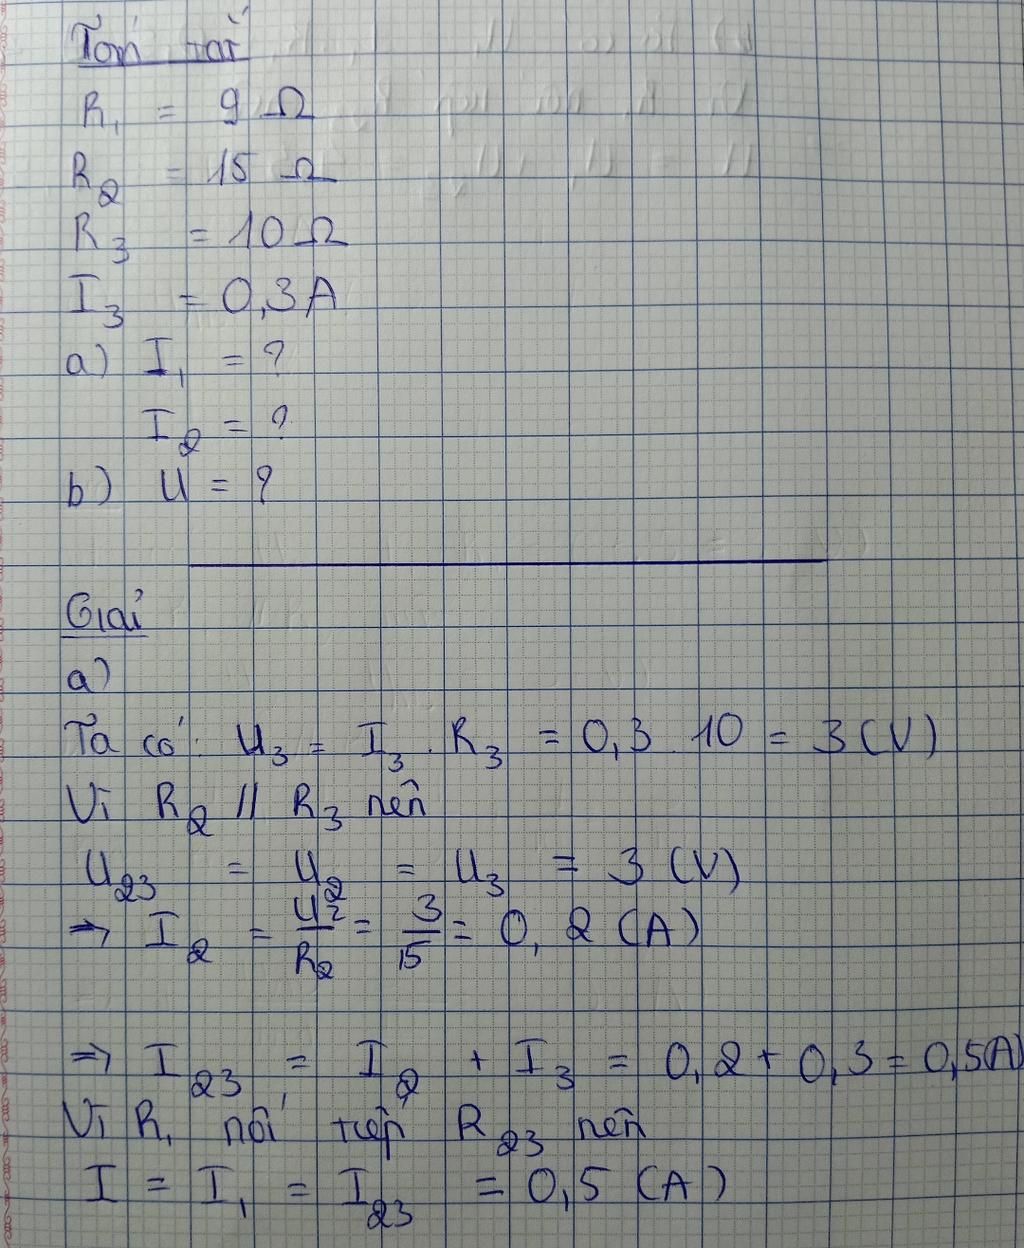 Tóm tắt
R₁ = 9 Ω
R₂ = 15 Ω
R₃ = 10 Ω
I₃ = 0,3A
a) I₁ = ?
I₂ = ?
b) U = ?
Giải
a)
Ta có: U₃ = I₃ . R₃ = 0,3 . 10 = 3 (V)
Vì R₂ // R₃ nên
U₂₃ = U₂ = U₃ = 3 (V)
=> I₂ = U₂/R₂ = 3/15 = 0,2 (A)
=> I₂₃ = I₂ + I₃ = 0,2 + 0,3 = 0,5(A)
Vì R₁ nối tiếp R₂₃ nên
I = I₁ = I₂₃ = 0,5 (A)